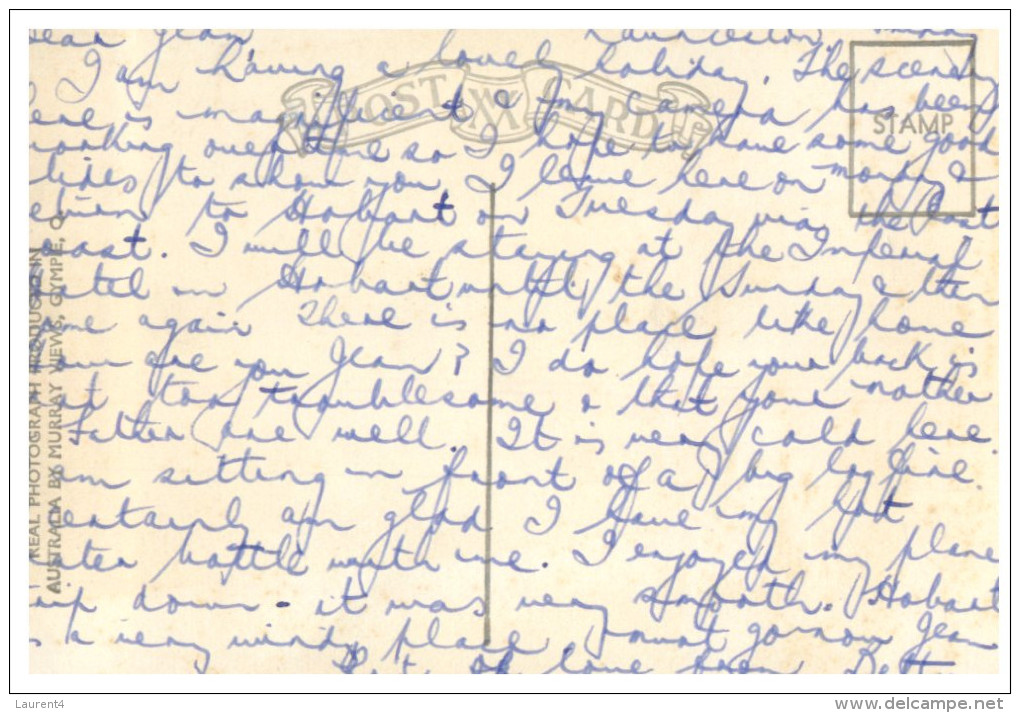 Dear Jean Launceston
I am having a lovely holiday. The scenery
here is magnificent & my camera has been
working overtime so I hope to have some good
slides to show you. I leave here on Monday &
return to Hobart on Tuesday via the East
Coast. I will be staying at the Imperial
Hotel in Hobart until the Sunday & then
home again There is no place like home
How are you Jean? I do hope your back is
not too troublesome & that your mother
& Father are well. It is very cold here.
am sitting in front of a big log fire.
certainly am glad I have my hot
water bottle with me. I enjoyed my plane
trip down - it was very smooth. Hobart
is a very windy place must go now Jean
of love from Bett
POST CARD
STAMP
REAL PHOTOGRAPH PRODUCED IN
AUSTRALIA BY MURRAY VIEWS, GYMPIE, Q.
Laurent4
www.delcampe.net